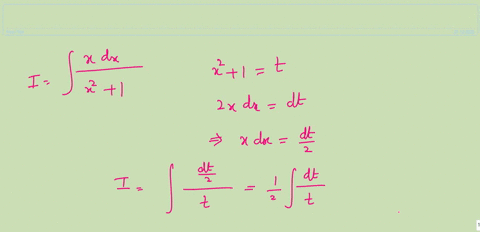 I = ∫ x dx / x² + 1
x² + 1 = t
2x dx = dt
⇒ x dx = dt/2
I = ∫ dt/2 / t = 1/2 ∫ dt/t